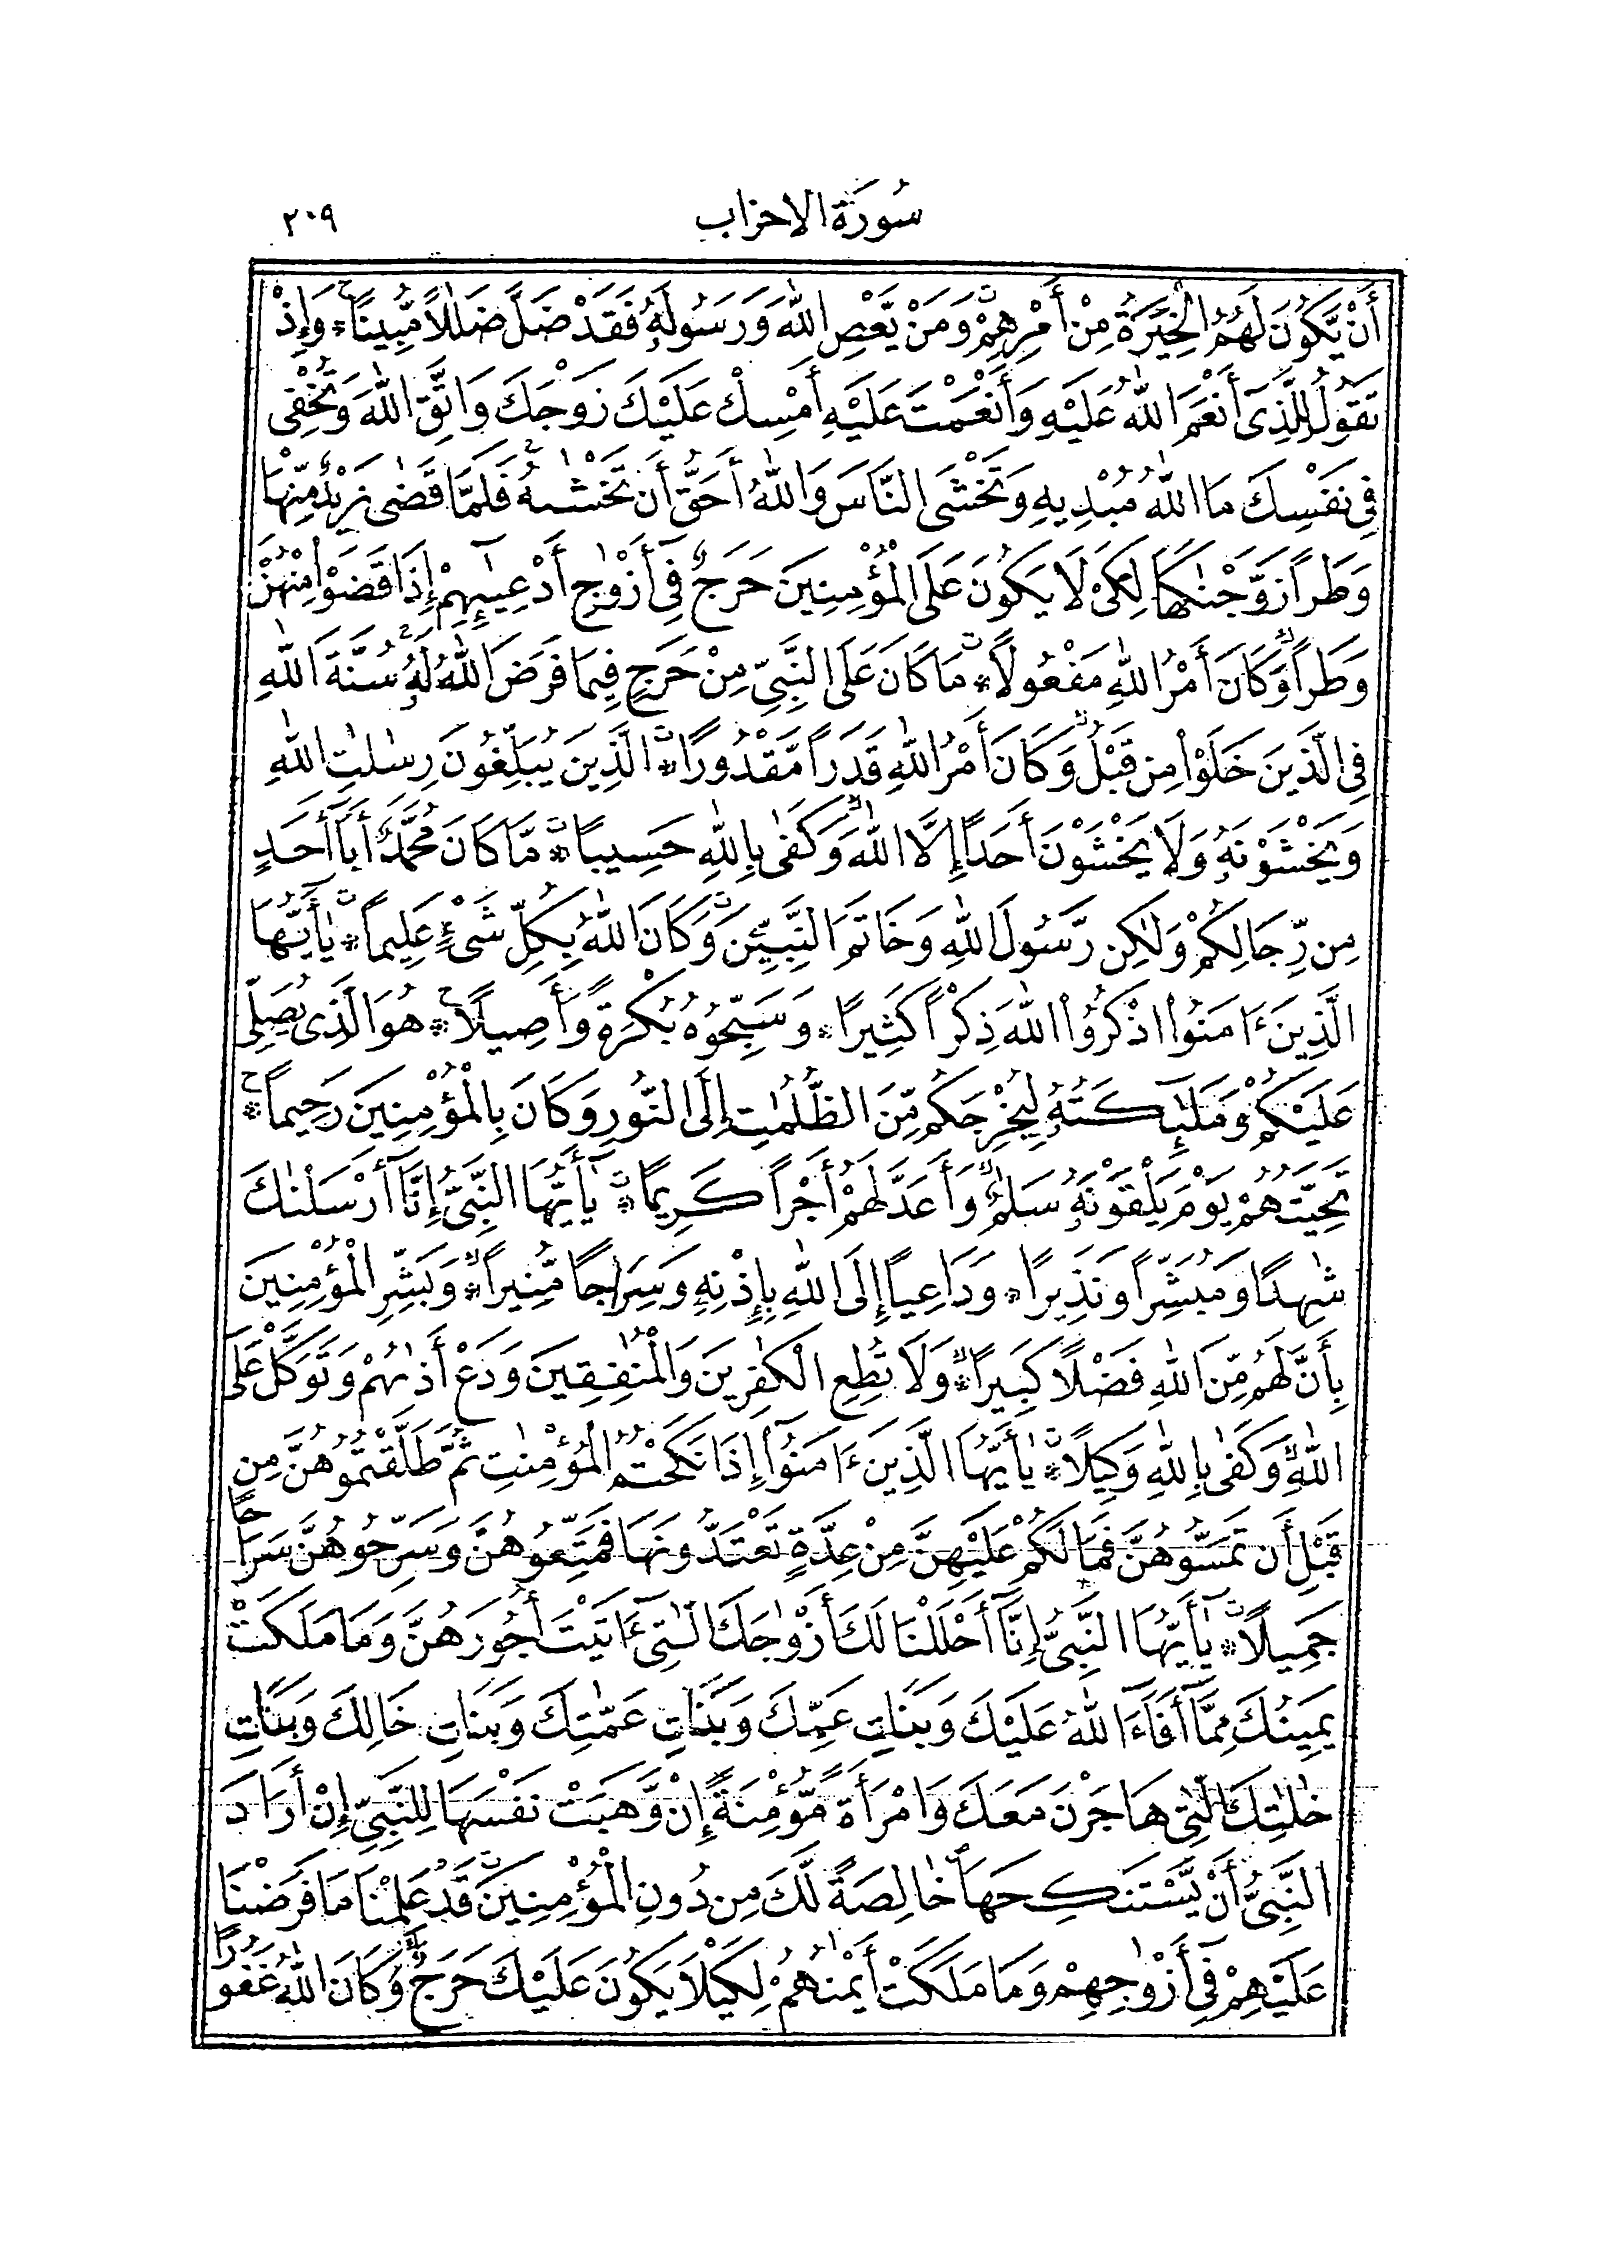 سُورَة الاحزاب ٢٠٩
أَنْ يَّكُونَ لَهُمُ الْخِيَرَةُ مِنْ أَمْرِهِمْ وَمَنْ يَّعْصِ اللّٰهَ وَرَسُولَهُۥ فَقَدْ ضَلَّ ضَلَٰلًا مُّبِينًا * وَإِذْ
تَقُولُ لِلَّذِىٓ أَنْعَمَ اللّٰهُ عَلَيْهِ وَأَنْعَمْتَ عَلَيْهِ أَمْسِكْ عَلَيْكَ زَوْجَكَ وَاتَّقِ اللّٰهَ وَتُخْفِى
فِى نَفْسِكَ مَا اللّٰهُ مُبْدِيهِ وَتَخْشَى النَّاسَ وَاللّٰهُ أَحَقُّ أَن تَخْشَىٰهُ فَلَمَّا قَضَىٰ زَيْدٌ مِّنْهَا
وَطَرًا زَوَّجْنَٰكَهَا لِكَىْ لَا يَكُونَ عَلَى الْمُؤْمِنِينَ حَرَجٌ فِىٓ أَزْوَٰجِ أَدْعِيَآئِهِمْ إِذَا قَضَوْا۟ مِنْهُنَّ
وَطَرًا وَكَانَ أَمْرُ اللّٰهِ مَفْعُولًا * مَا كَانَ عَلَى النَّبِىِّ مِنْ حَرَجٍ فِيمَا فَرَضَ اللّٰهُ لَهُۥ سُنَّةَ اللّٰهِ
فِى الَّذِينَ خَلَوْا۟ مِن قَبْلُ وَكَانَ أَمْرُ اللّٰهِ قَدَرًا مَّقْدُورًا * الَّذِينَ يُبَلِّغُونَ رِسَٰلَٰتِ اللّٰهِ
وَيَخْشَوْنَهُۥ وَلَا يَخْشَوْنَ أَحَدًا إِلَّا اللّٰهَ وَكَفَىٰ بِاللّٰهِ حَسِيبًا * مَّا كَانَ مُحَمَّدٌ أَبَآ أَحَدٍ
مِن رِّجَالِكُمْ وَلَٰكِن رَّسُولَ اللّٰهِ وَخَاتَمَ النَّبِيِّۦنَ وَكَانَ اللّٰهُ بِكُلِّ شَىْءٍ عَلِيمًا * يَٰٓأَيُّهَا
الَّذِينَ ءَامَنُوا۟ اذْكُرُوا۟ اللّٰهَ ذِكْرًا كَثِيرًا * وَسَبِّحُوهُ بُكْرَةً وَأَصِيلًا * هُوَ الَّذِى يُصَلِّى
عَلَيْكُمْ وَمَلَٰٓئِكَتُهُۥ لِيُخْرِجَكُم مِّنَ الظُّلُمَٰتِ إِلَى النُّورِ وَكَانَ بِالْمُؤْمِنِينَ رَحِيمًا *
تَحِيَّتُهُمْ يَوْمَ يَلْقَوْنَهُۥ سَلَٰمٌ وَأَعَدَّ لَهُمْ أَجْرًا كَرِيمًا * يَٰٓأَيُّهَا النَّبِىُّ إِنَّآ أَرْسَلْنَٰكَ
شَٰهِدًا وَمُبَشِّرًا وَنَذِيرًا * وَدَاعِيًا إِلَى اللّٰهِ بِإِذْنِهِۦ وَسِرَاجًا مُّنِيرًا * وَبَشِّرِ الْمُؤْمِنِينَ
بِأَنَّ لَهُم مِّنَ اللّٰهِ فَضْلًا كَبِيرًا * وَلَا تُطِعِ الْكَٰفِرِينَ وَالْمُنَٰفِقِينَ وَدَعْ أَذَىٰهُمْ وَتَوَكَّلْ عَلَى
اللّٰهِ وَكَفَىٰ بِاللّٰهِ وَكِيلًا * يَٰٓأَيُّهَا الَّذِينَ ءَامَنُوٓا۟ إِذَا نَكَحْتُمُ الْمُؤْمِنَٰتِ ثُمَّ طَلَّقْتُمُوهُنَّ مِن
قَبْلِ أَن تَمَسُّوهُنَّ فَمَا لَكُمْ عَلَيْهِنَّ مِنْ عِدَّةٍ تَعْتَدُّونَهَا فَمَتِّعُوهُنَّ وَسَرِّحُوهُنَّ سَرَاحًا
جَمِيلًا * يَٰٓأَيُّهَا النَّبِىُّ إِنَّآ أَحْلَلْنَا لَكَ أَزْوَٰجَكَ الَّٰتِىٓ ءَاتَيْتَ أُجُورَهُنَّ وَمَا مَلَكَتْ
يَمِينُكَ مِمَّآ أَفَآءَ اللّٰهُ عَلَيْكَ وَبَنَاتِ عَمِّكَ وَبَنَاتِ عَمَّٰتِكَ وَبَنَاتِ خَالِكَ وَبَنَاتِ
خَٰلَٰتِكَ الَّٰتِى هَاجَرْنَ مَعَكَ وَامْرَأَةً مُّؤْمِنَةً إِنْ وَّهَبَتْ نَفْسَهَا لِلنَّبِىِّ إِنْ أَرَادَ
النَّبِىُّ أَنْ يَّسْتَنكِحَهَا خَالِصَةً لَّكَ مِن دُونِ الْمُؤْمِنِينَ قَدْ عَلِمْنَا مَا فَرَضْنَا
عَلَيْهِمْ فِىٓ أَزْوَٰجِهِمْ وَمَا مَلَكَتْ أَيْمَٰنُهُمْ لِكَيْلَا يَكُونَ عَلَيْكَ حَرَجٌ وَكَانَ اللّٰهُ غَفُورًا